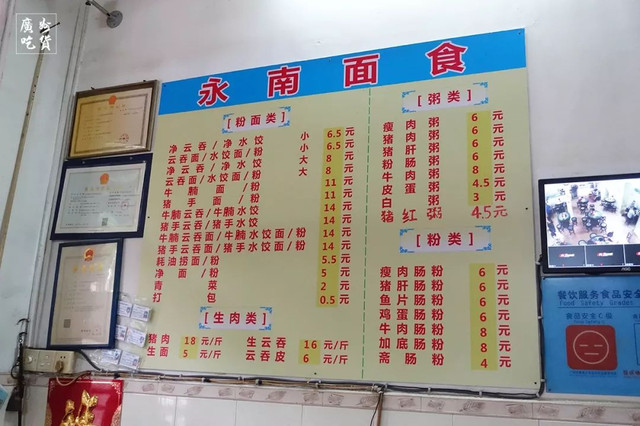 廣州
吃貨
永南面食
[粉面类]
净云吞/净水饺 小 6.5元
云吞面/水饺面/粉 小 6.5元
净云吞/净水饺 大 8元
云吞面/水饺面/粉 大 8元
牛腩面/粉 11元
猪手面/粉 11元
牛腩云吞/牛腩水饺 14元
猪手云吞/猪手水饺 14元
牛腩云吞面/牛腩水饺面/粉 14元
猪手云吞面/猪手水饺面/粉 14元
耗油捞面/粉 5.5元
净面/粉 5元
青菜 2元
打包 0.5元
[生肉类]
猪肉 18元/斤 生云吞 16元/斤
生面 5元/斤 云吞皮 6元/斤
[粥类]
瘦肉粥 6元
猪肉粥 6元
猪肝粥 6元
粉肠粥 6元
牛肉粥 8元
皮蛋粥 4.5元
白粥 3元
猪红粥 4.5元
[粉类]
瘦肉肠粉 6元
猪肝肠粉 6元
鱼片肠粉 6元
鸡蛋肠粉 6元
牛肉肠粉 8元
加底肠粉 8元
斋肠粉 4元
餐饮服务食品安
Food Safety Grade